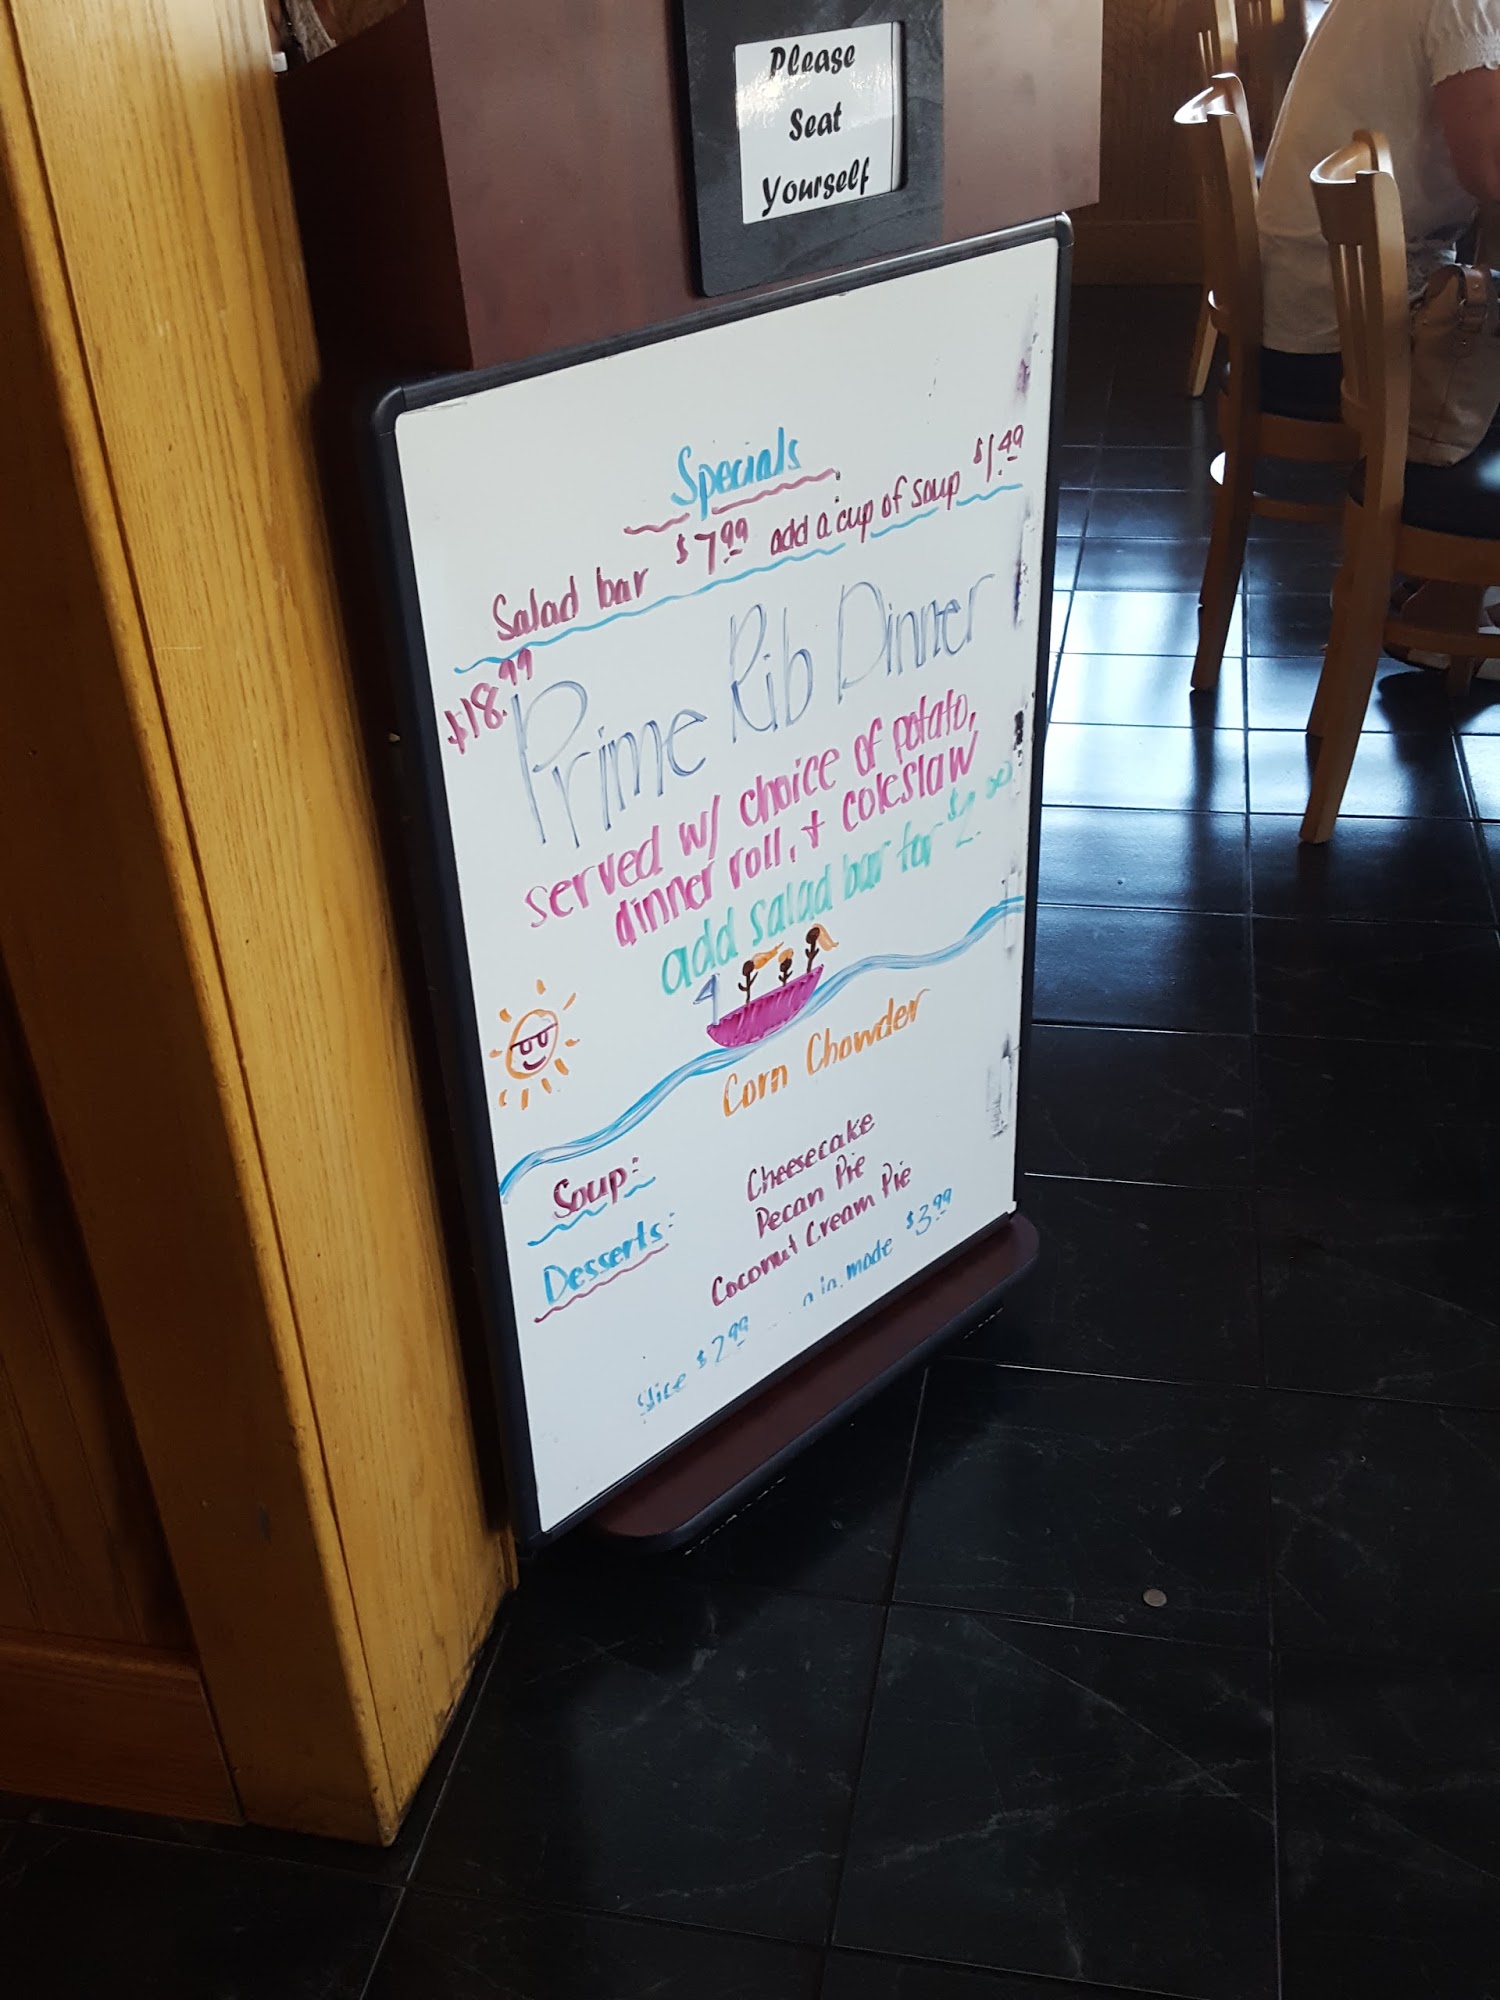 Please
Seat
Yourself
Specials
Salad bar $7.99 add a cup of soup $1.49
$18.99 Prime Rib Dinner
served w/ choice of potato,
dinner roll, + coleslaw
add salad bar for $2.
Corn Chowder
Soup:
Desserts:
Cheesecake
Pecan Pie
Coconut Cream Pie
Slice $2.99 made $3.99